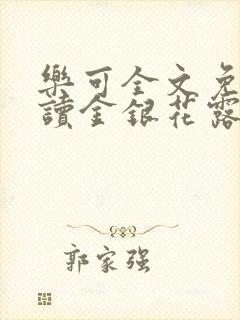 樂可全文免
讀金銀花露
郭家强